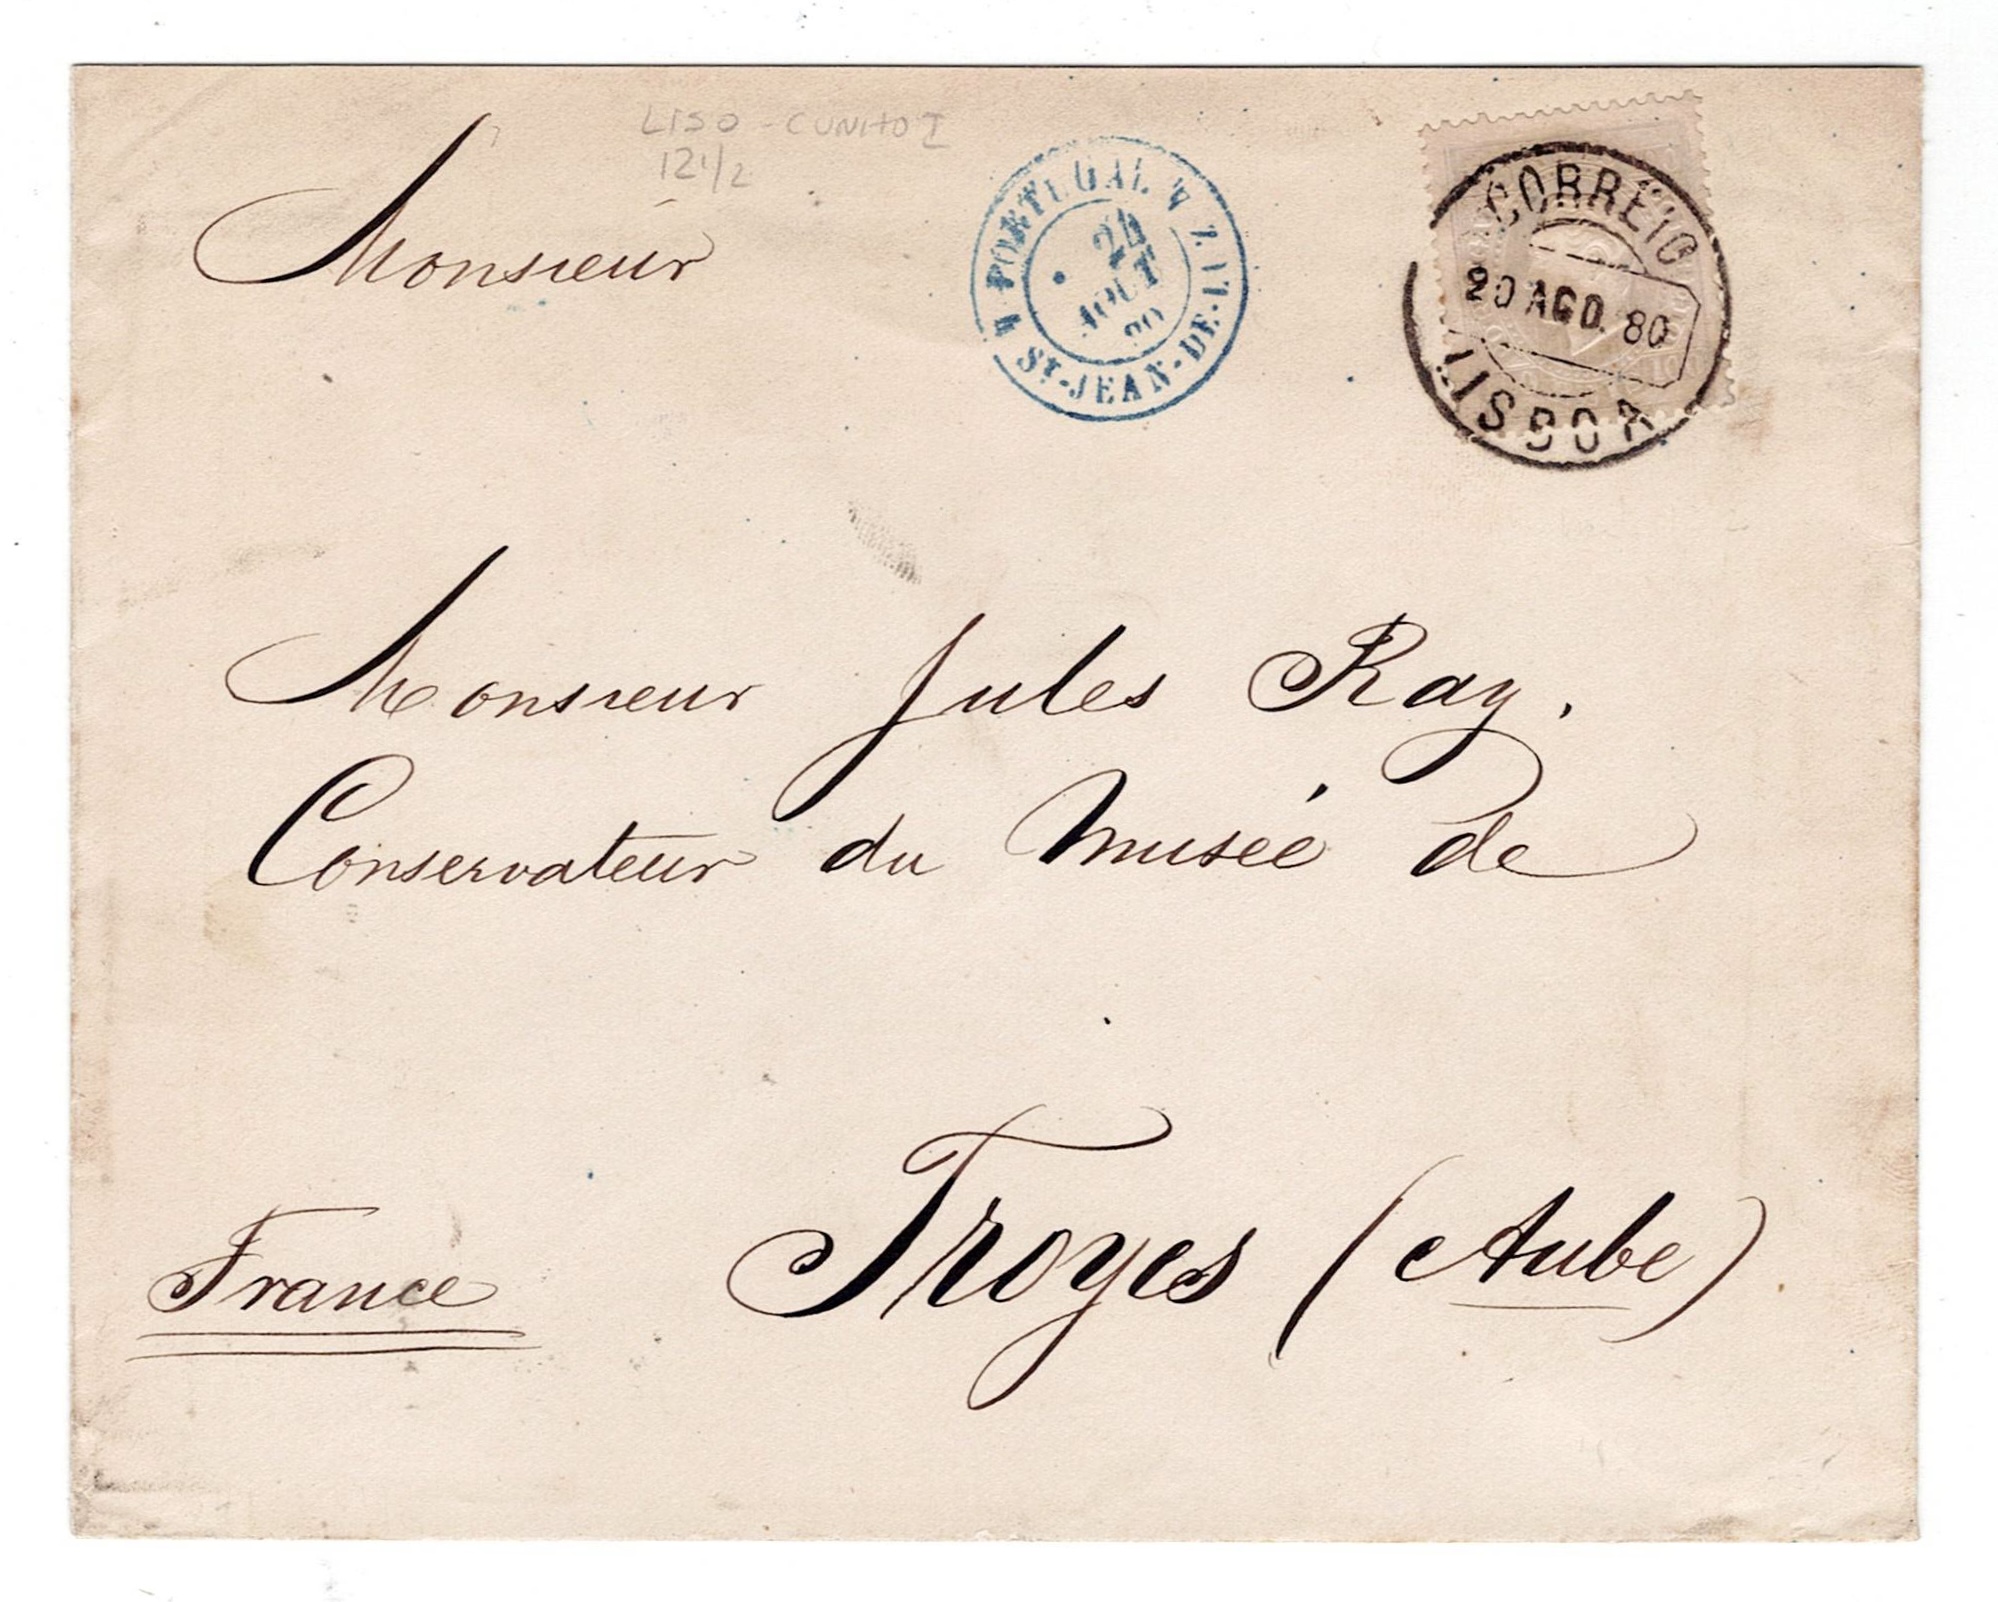 LISO - CUNHO I
12 1/2
4 PORTUGAL
24
AOUT
80
St-JEAN-DE-LUZ
CORREIO
20 AGO. 80
LISBOA
Monsieur
Monsieur Jules Ray.
Conservateur du Musée de
Troyes (Aube)
France